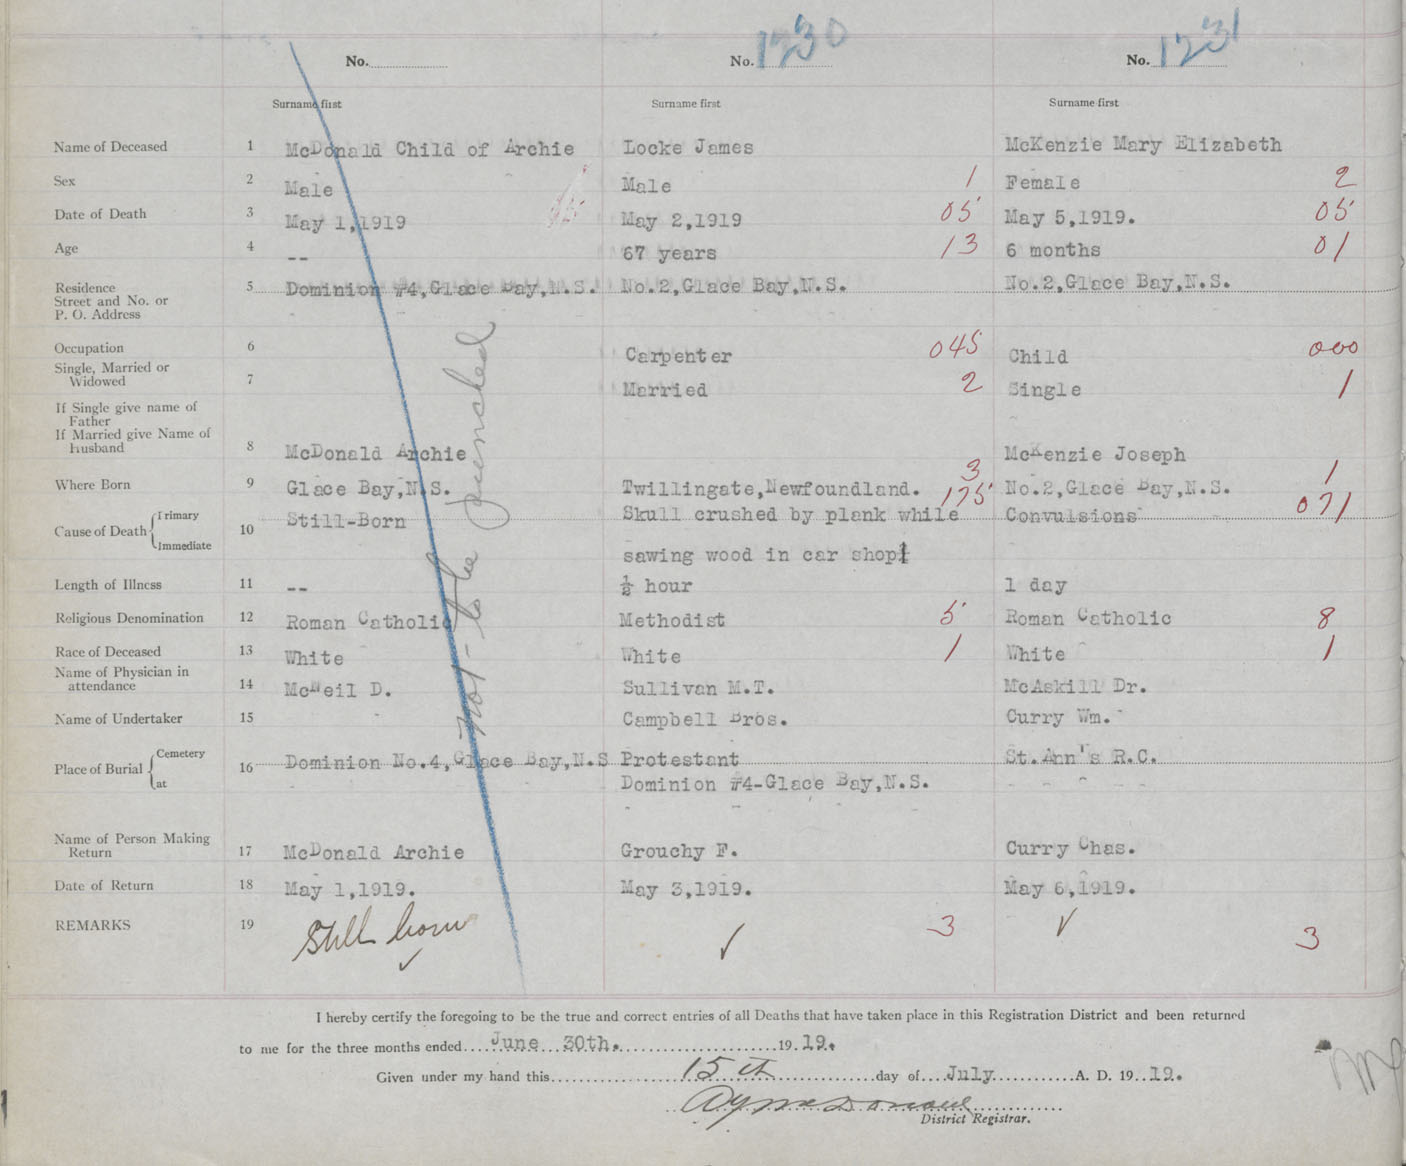 No. No. 1230 No. 1231
Surname first Surname first Surname first
Name of Deceased 1 McDonald Child of Archie Locke James McKenzie Mary Elizabeth
Sex 2 Male Male 1 Female 2
Date of Death 3 May 1,1919 May 2,1919 05 May 5,1919. 05
Age 4 -- 67 years 13 6 months 01
Residence
Street and No. or
P. O. Address
5 Dominion #4,Glace Bay,N.S. No.2,Glace Bay,N.S. No.2,Glace Bay,N.S.
Occupation 6 Carpenter 045 Child 000
Single, Married or
Widowed 7 Married 2 Single 1
If Single give name of
Father
If Married give Name of
Husband 8 McDonald Archie McKenzie Joseph
Where Born 9 Glace Bay,N.S. Twillingate,Newfoundland. 3 No.2,Glace Bay,N.S. 1
Cause of Death Primary
Immediate
10 Still-Born Skull crushed by plank while 175 Convulsions 071
sawing wood in car shop.
Length of Illness 11 -- ½ hour 1 day
Religious Denomination 12 Roman Catholic Methodist 5 Roman Catholic 8
Race of Deceased 13 White White 1 White 1
Name of Physician in
attendance 14 McNeil D. Sullivan M.T. McAskill Dr.
Name of Undertaker 15 Campbell Bros. Curry Wm.
Place of Burial Cemetery
at
16 Dominion No.4,Glace Bay,N.S Protestant St.Ann's R.C.
Dominion #4-Glace Bay,N.S.
Name of Person Making
Return 17 McDonald Archie Grouchy F. Curry Chas.
Date of Return 18 May 1,1919. May 3,1919. May 6,1919.
REMARKS 19 Still born 3 3
not-to be punched
I hereby certify the foregoing to be the true and correct entries of all Deaths that have taken place in this Registration District and been returned
to me for the three months ended June 30th. 1919.
Given under my hand this 15th day of July A. D. 1919.
District Registrar.